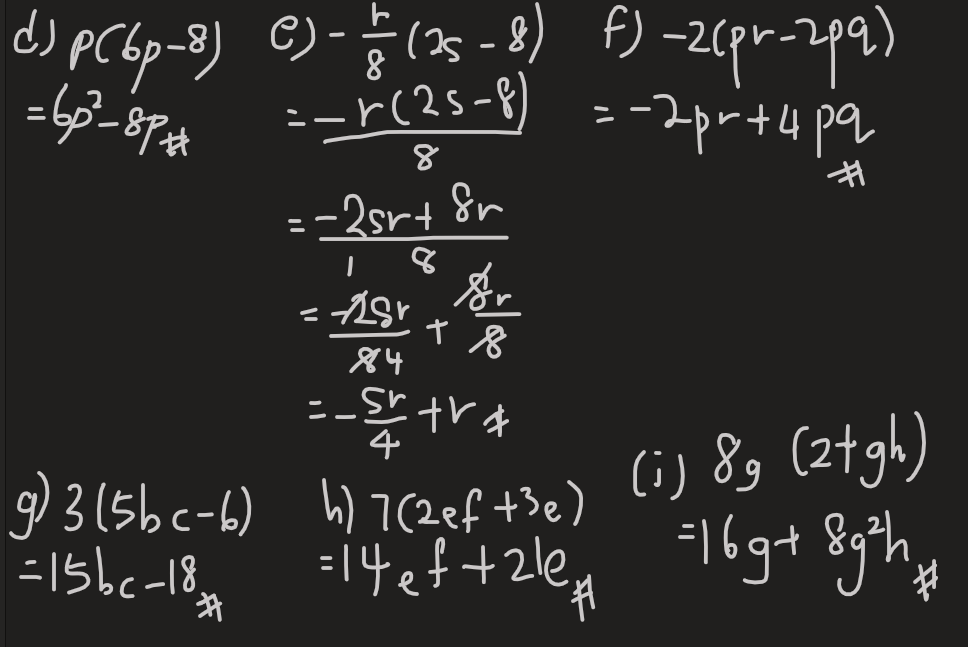 d) p(6p-8)
= 6p² - 8p #
e) - r/8 (2s - 8)
= - r(2s-8)/8
= -2sr + 8r/8
= -2sr/8 + 8r/8
1 4
= - sr/4 + r #
f) -2(pr-2pq)
= -2pr + 4pq #
g) 3(5bc-6)
= 15bc - 18 #
h) 7(2ef + 3e)
= 14ef + 21e #
(i) 8g (2+gh)
= 16g + 8g²h #